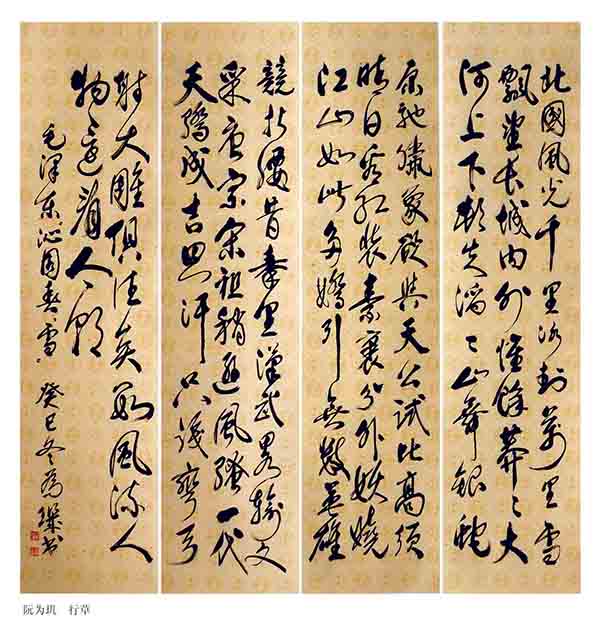 北國風光千里冰封萬里雪
飄望長城內外惟餘莽〻大
河上下頓失滔〻山舞銀蛇
原馳蠟象欲與天公試比高須
晴日看紅裝素裹分外妖嬈
江山如此多嬌引無數英雄
競折腰昔秦皇漢武略輸文
采唐宗宋祖稍遜風騷一代
天驕成吉思汗只識彎弓
射大雕俱往矣數風流人
物還看今朝
毛澤東沁園春雪 癸巳冬為璣書
阮为玑 行草